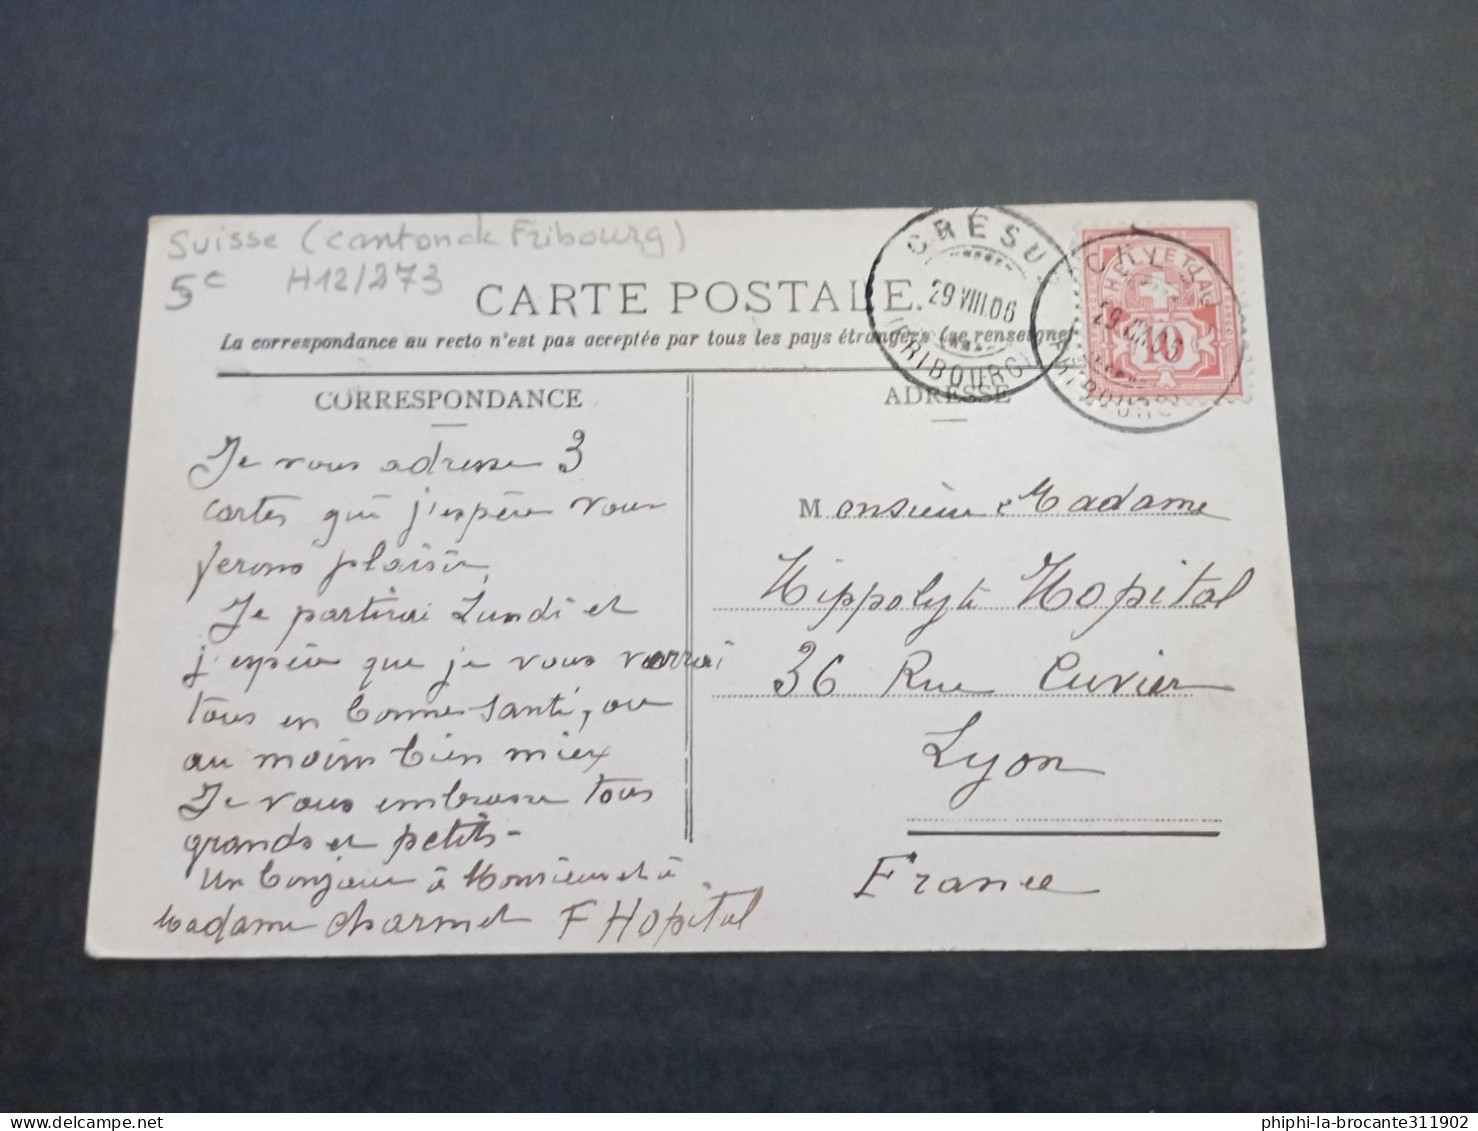 Suisse (canton de Fribourg)
5c H12/273
CARTE POSTALE.
La correspondance au recto n'est pas acceptée par tous les pays étrangers (se renseigner
CRÉSUZ
29 VIII.06
(FRIBOURG)
HELVETIA
10
CORRESPONDANCE
ADRESSE
Je vous adresse 3
cartes que j'espère vous
ferons plaisir.
Je partirai Lundi et
j'espère que je vous verrai
tous en bonne santé, ou
au moins bien mieux
Je vous embrasse tous
grands et petits -
Un bonjour à Monsieur et à
Madame Charmet F Hopital
Monsieur e Madame
Hippolyte Hopital
36 Rue Cuvier
Lyon
France
phiphi-la-brocante311902